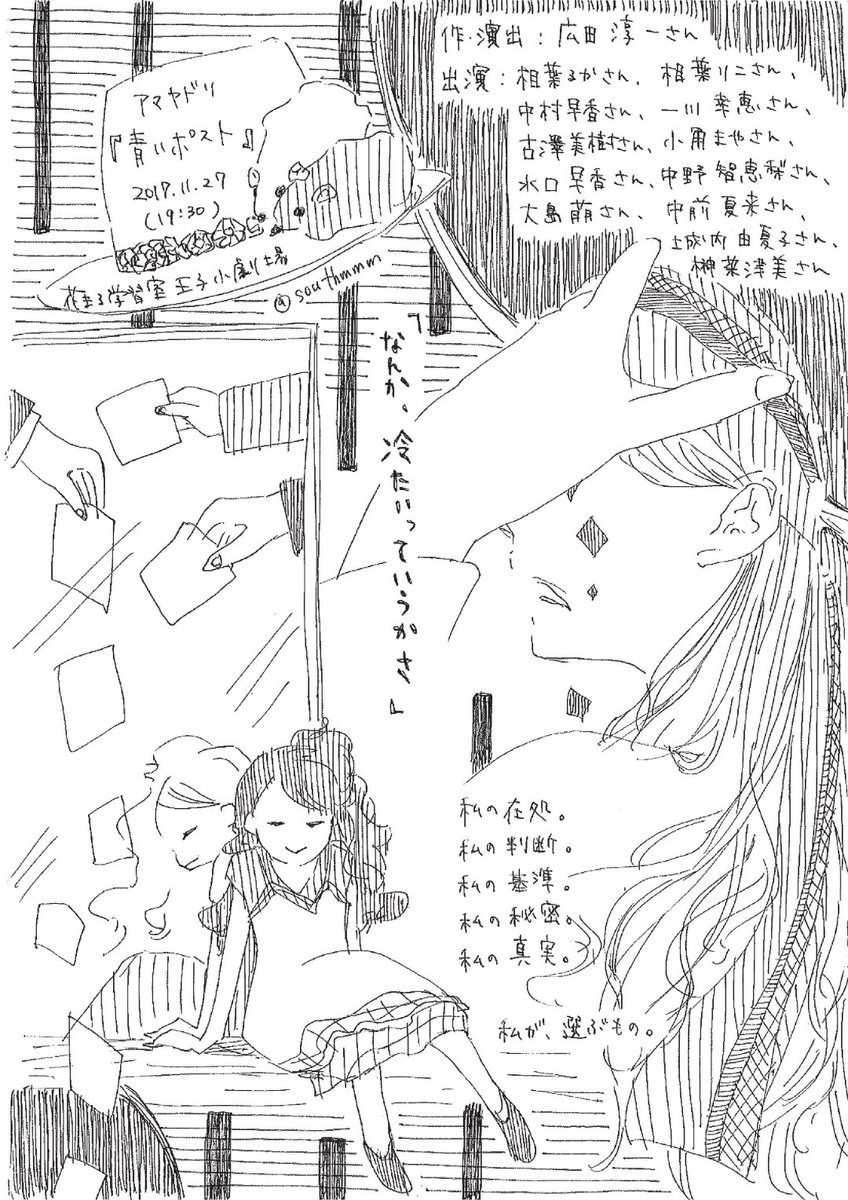 アマヤドリ
『青いポスト』
2017.11.27
(19:30)
花まる学習室 王子小劇場
@southmmm
作・演出：広田淳一さん
出演：相葉るかさん、相葉りこさん、
中村早香さん、一川幸恵さん、
古澤美樹さん、小角まやさん、
水口早香さん、中野智恵梨さん、
大島萌さん、中前夏来さん、
土城内由夏子さん、
榊菜津美さん
「なんか、冷たいっていうかさ」
私の在処。
私の判断。
私の基準。
私の秘密。
私の真実。
私が、選ぶもの。